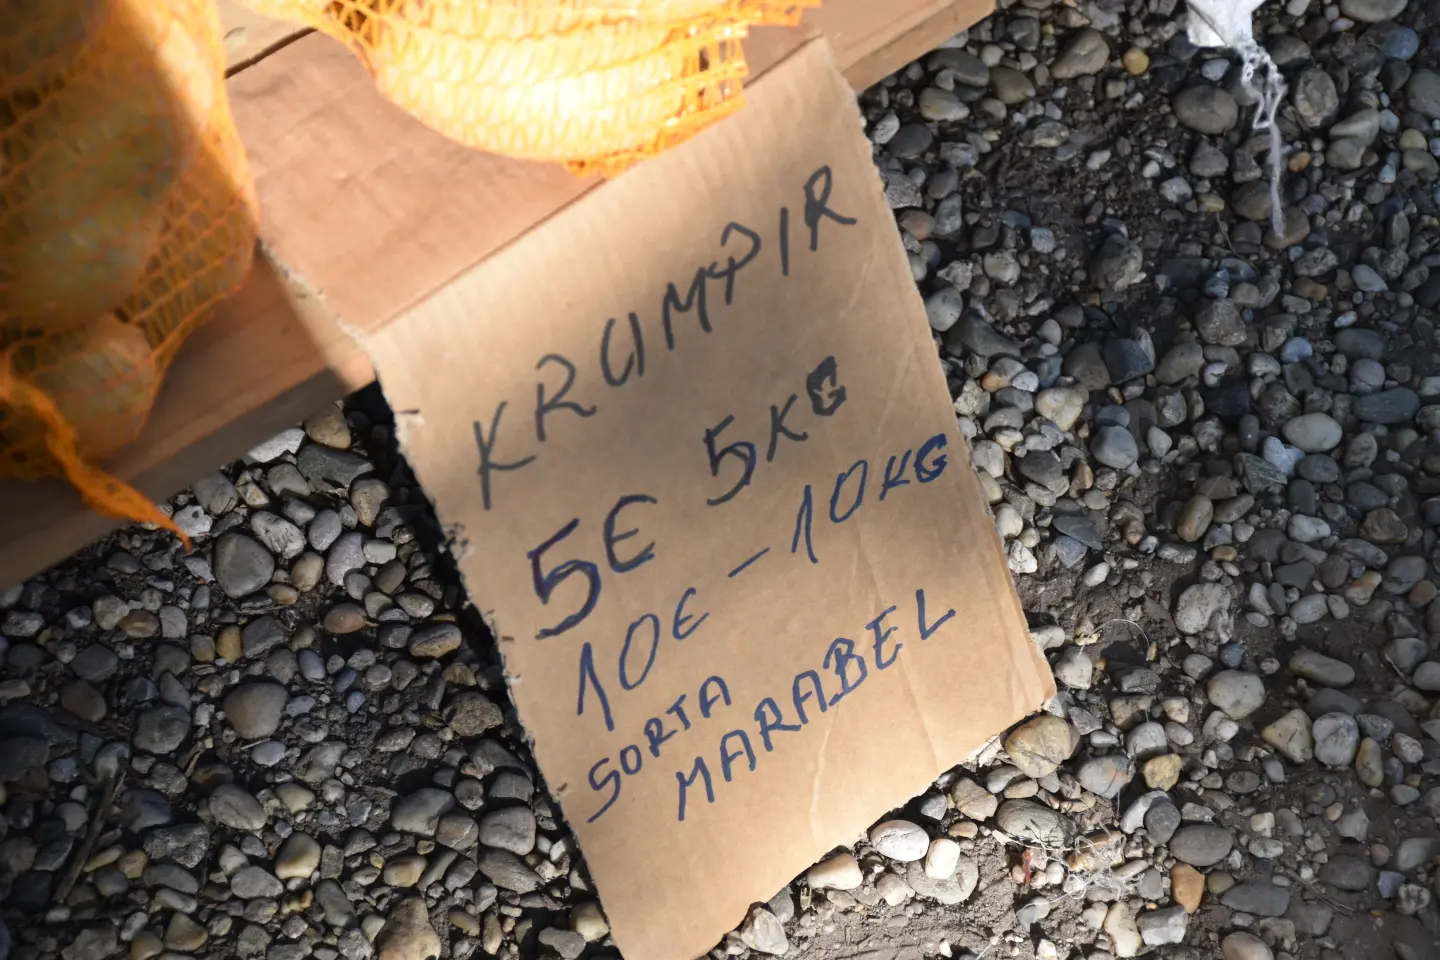 KRUMPIR
5€ 5KG
10€ - 10KG
SORTA
MARABEL